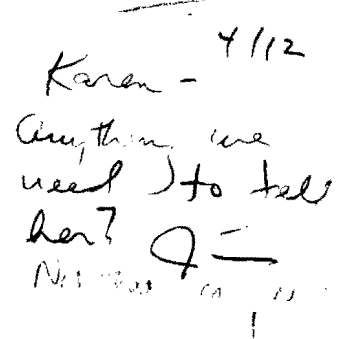 4/12
Karen -
Anything we
need to tell
her? Jim